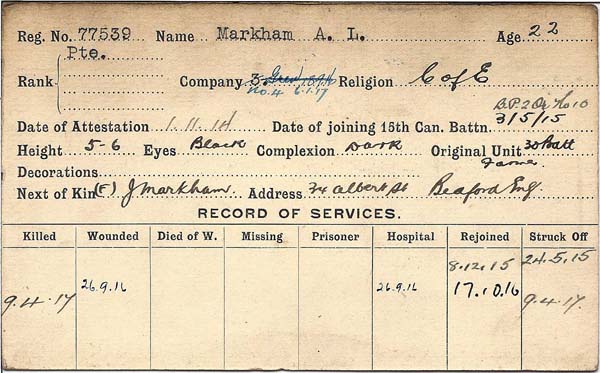 Reg. No. 77539 Name Markham A. L. Age 22
Pte.
Rank Company 3. No. 4 6.1.17 Religion C of E
B.P.2 No 10
Date of Attestation 1.11.14 Date of joining 15th Can. Battn. 3/5/15
Height 5-6 Eyes Black Complexion Dark Original Unit 30 Batt
Decorations
Next of Kin (F) J Markham. Address 34 Albert St Beaford Eng.
RECORD OF SERVICES.
Killed Wounded Died of W. Missing Prisoner Hospital Rejoined Struck Off
8.12.15 24.5.15
26.9.16 26.9.16 17.10.16
9.4.17 9.4.17.